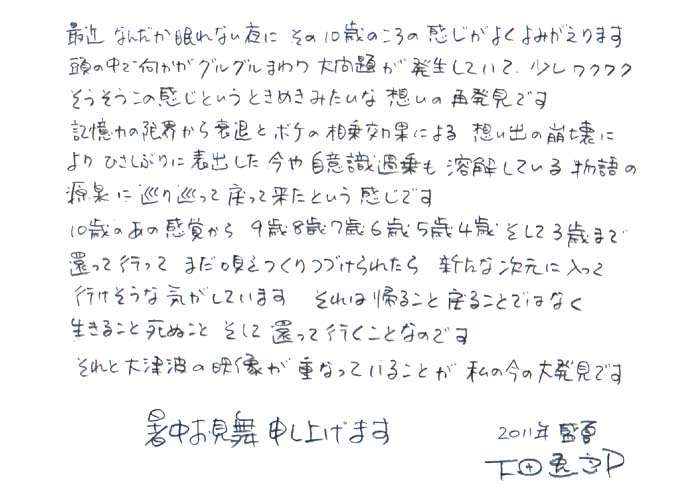 最近 なんだか眠れない夜に その10歳のころの感じがよくよみがえります
頭の中で何かがグルグルまわり 大問題が発生していて、少しワクワク
そうそうこの感じというときめきみたいな 想いの再発見です
記憶力の限界から衰退とボケの相乗効果による 想い出の崩壊に
より ひさしぶりに表出した今や自意識過乗も溶解している物語の
源泉に巡り巡って戻って来たという感じです
10歳のあの感覚から 9歳8歳7歳6歳5歳4歳 そして3歳まで
還って行って まだ唄をつくりつづけられたら 新たな次元に入って
行けそうな気がしています それは帰ること戻ることではなく
生きること死ぬこと そして還って行くことなのです
それと大津波の映像が重なっていることが 私の今の大発見です
暑中お見舞申し上げます
2011年 盛夏
下田逸郎